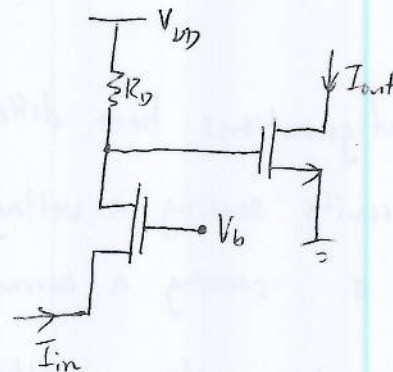 V_DD
R_D
I_out
V_b
I_in